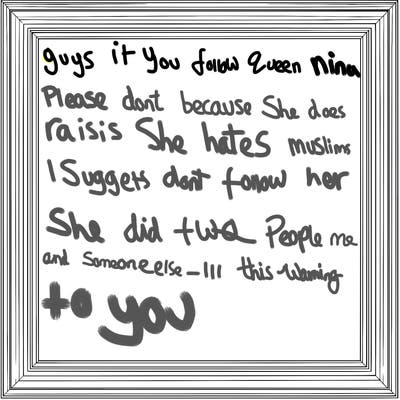 guys it you follow queen nina
Please dont because She does
raisis She hates muslims
I Suggets dont follow her
She did two People me
and Someone else _ lll this warning
to you